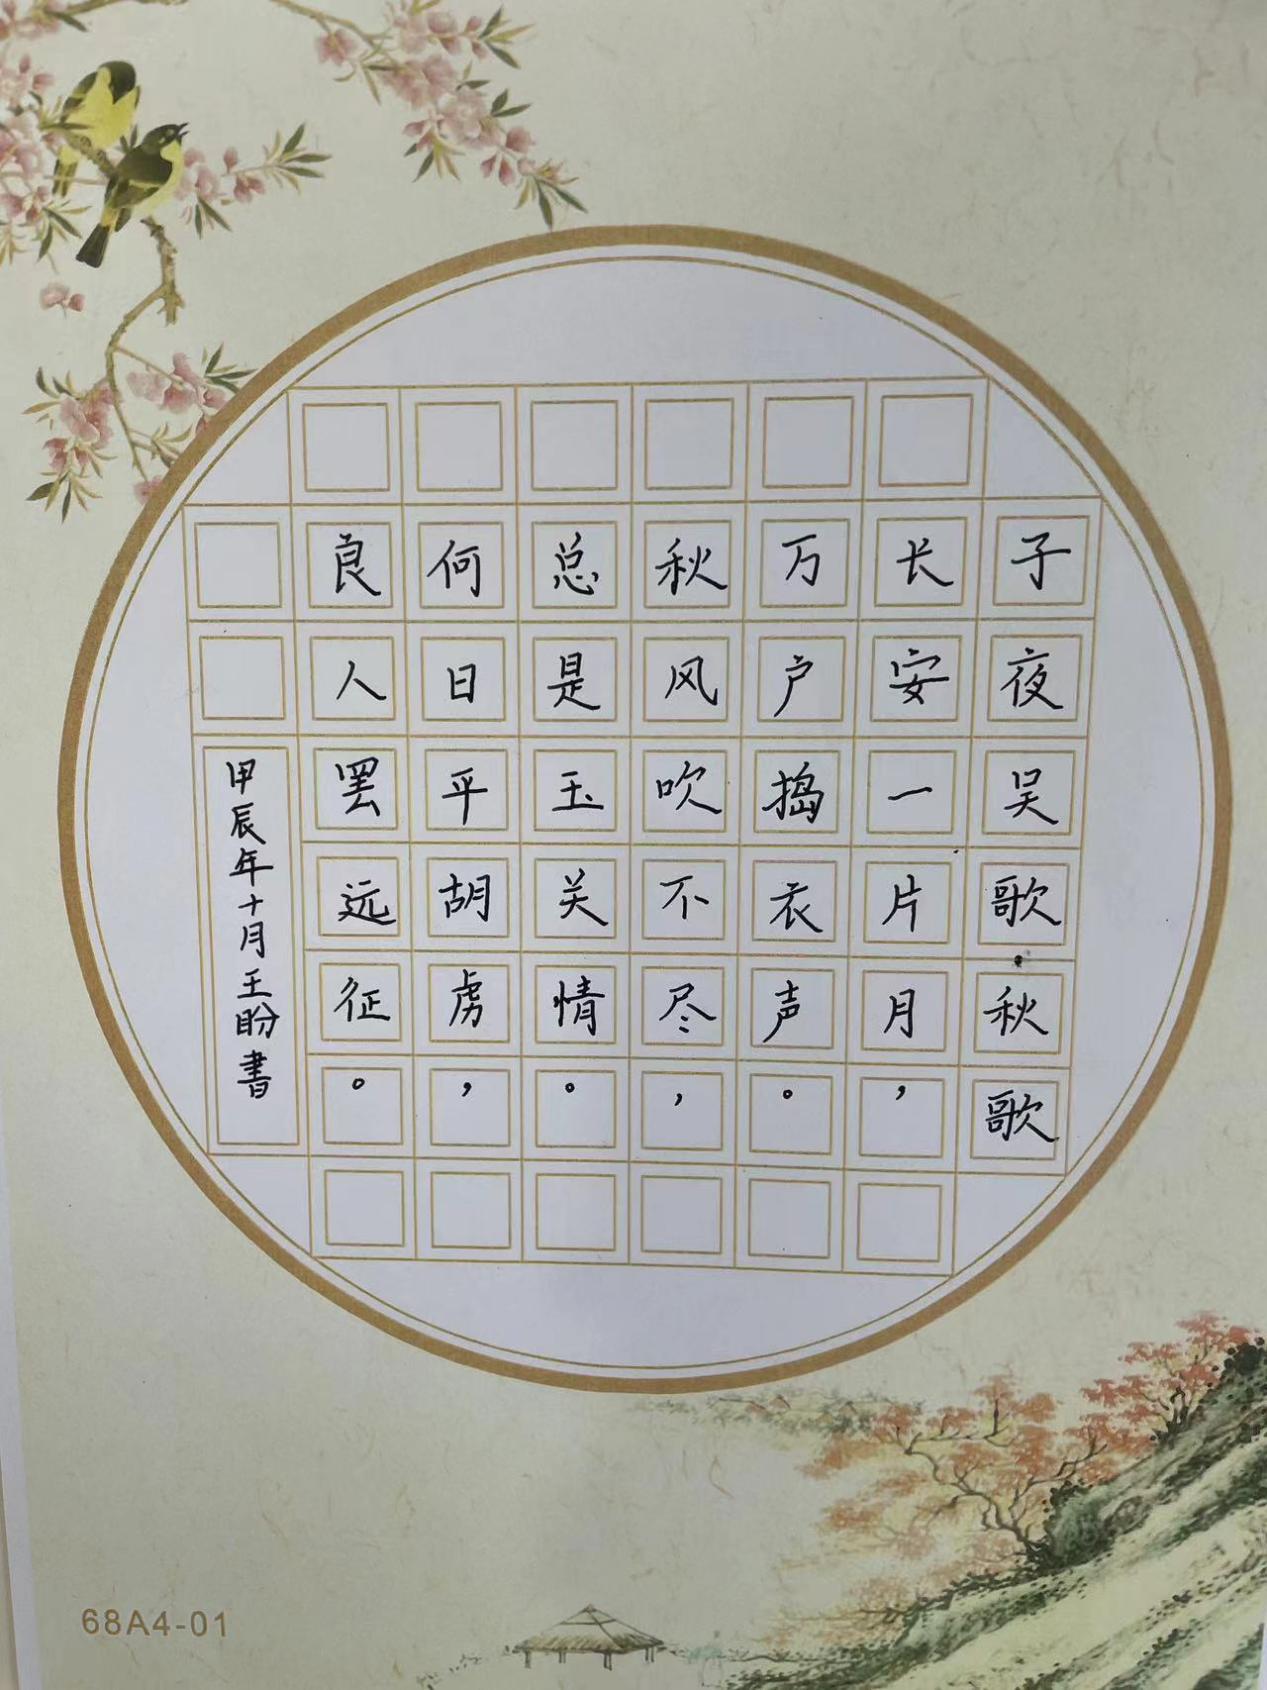 子夜吴歌·秋歌
长安一片月，
万户捣衣声。
秋风吹不尽，
总是玉关情。
何日平胡虏，
良人罢远征。
甲辰年十月王盼書
68A4-01